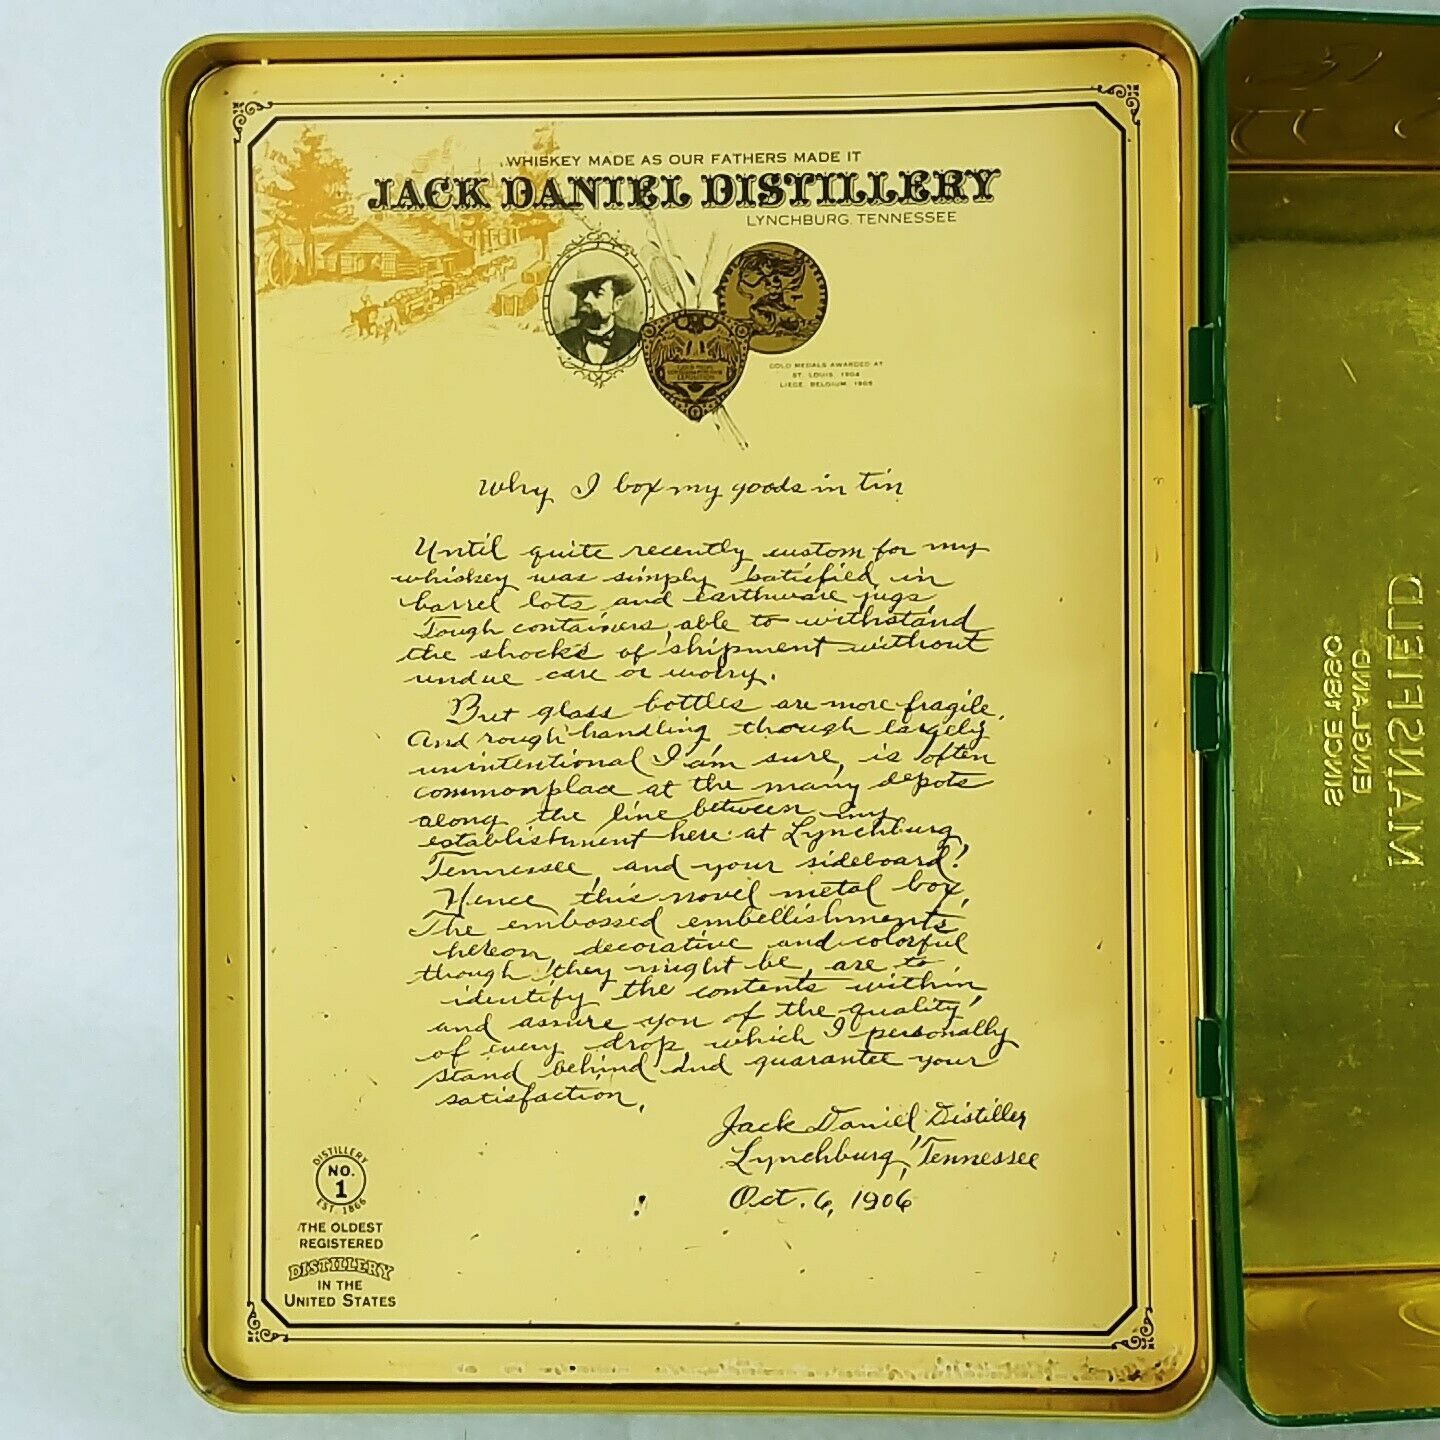 WHISKEY MADE AS OUR FATHERS MADE IT
JACK DANIEL DISTILLERY
LYNCHBURG, TENNESSEE
GOLD MEDALS AWARDED AT
ST. LOUIS, 1904
LIEGE, BELGIUM, 1905
Why I box my goods in tin
Until quite recently custom for my
whiskey was simply satisfied in
barrel lots and earthware jugs
Tough containers able to withstand
the shocks of shipment without
undue care or worry.
But glass bottles are more fragile.
And rough handling though largely
unintentional I am sure, is often
commonplace at the many depots
along the line between my
establishment here at Lynchburg
Tennessee, and your sideboard!
Hence this novel metal box.
The embossed embellishments
hereon, decorative and colorful
though they might be, are to
identify the contents within,
and assure you of the quality
of every drop which I personally
stand behind and guarantee your
satisfaction.
Jack Daniel Distiller
Lynchburg, Tennessee
Oct. 6, 1906
DISTILLERY
NO.
1
EST. 1866
THE OLDEST
REGISTERED
DISTILLERY
IN THE
UNITED STATES
MANSFIELD
ENGLAND
SINCE